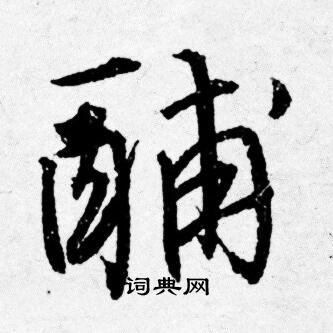 酺
词典网